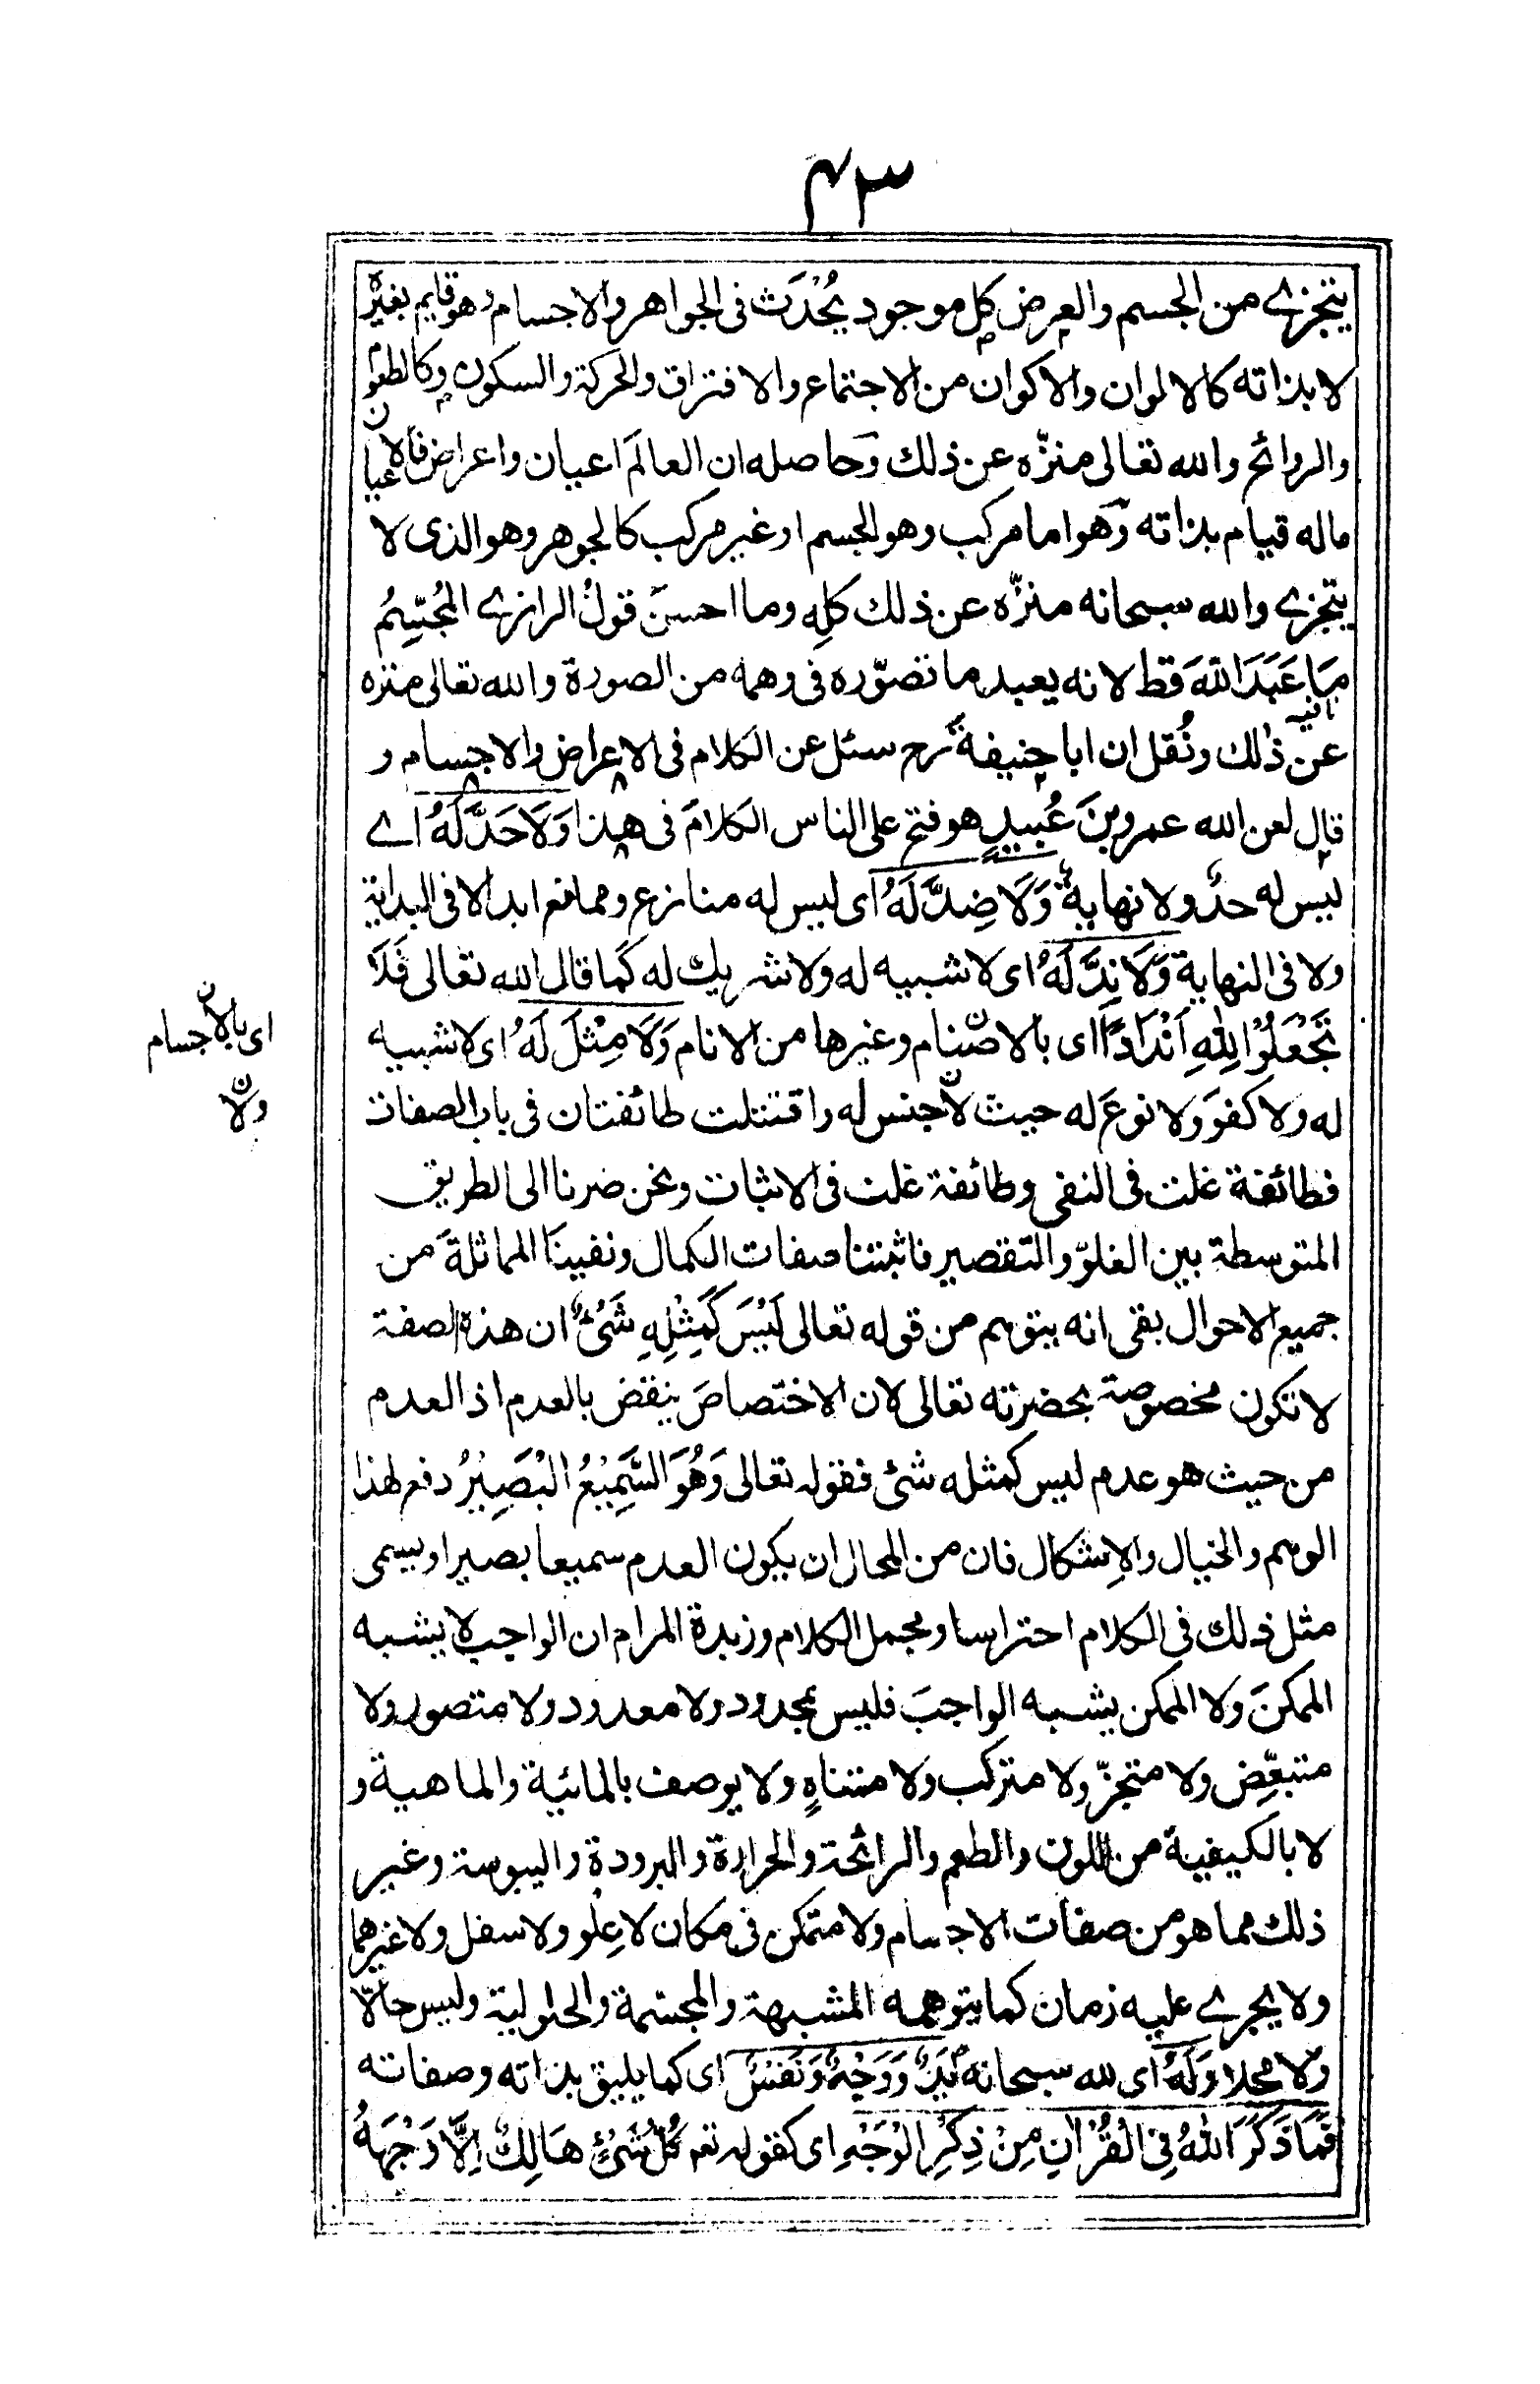 ٤٣
يتجزے من الجسم والعرض كل موجود يُحْدَث فى الجواهر والاجسام وهو قايم بغيره
لا بذاته كالالوان والاكوان من الاجتماع والافتراق والحركة والسكون وكالطعوم
والروائح والله تعالى منزّه عن ذلك وحاصله ان العالَم اعيان واعراض فالاعيان
ماله قيام بذاته وهو اما مركب وهو الجسم او غير مركب كالجوهر وهو الذى لا
يتجزے والله سبحانه منزّه عن ذلك كلِه وما احسنَ قولُ الرازے المُجَسِّمُ
مَا عَبَدَ اللّٰهَ قط لانه يعبد ما تصوّره فى وهمه من الصورة والله تعالى منزه
عن ذٰلك ونُقل ان ابا حنيفة رح سئل عن الكلام فى الاعراض والاجسام و
قال لعن الله عمرو بنَ عُبيدٍ هو فتح على الناس الكلامَ فى هذا وَلَا حَدَّ لَهُ اے
ليس له حدٌ ولا نهايةٌ وَلَا ضِدَّ لَهُ اى ليس له منازع وممانع ابدا لا فى البداية
ولا فى النهاية وَلَا نِدَّ لَهُ اى لا شبيه له ولا شريك له كما قال الله تعالى فَلَا
تَجْعَلُوْا لِلّٰهِ اَنْدَادًا اى بالاصنام وغيرها من الانام وَلَا مِثْلَ لَهُ اى لا شبيه
اى بالاجسام
له ولا كفوَ ولا نوعَ له حيث لا جنس له واقتتلت طائفتان فى باب الصفات
ولا
فطائفة غلت فى النفى وطائفة غلت فى الاثبات ونحن صرنا الى الطريق
المتوسطة بين الغلوّ والتقصير فاثبتنا صفات الكمال ونفينا المماثلةَ من
جميع الاحوال بقى انه يتوهم من قوله تعالى لَيْسَ كَمِثْلِهٖ شَىْءٌ ان هذه الصفة
لا تكون مخصوصة بحضرته تعالى لان الاختصاصَ ينقض بالعدم اذ العدم
من حيث هو عدم ليس كمثله شئ فقوله تعالى وَهُوَ السَّمِيْعُ الْبَصِيْرُ دفع لهذا
الوهم والخيال والاِشكال فان من المحال ان يكون العدم سميعا بصيرا ويسمى
مثل ذلك فى الكلام احتراسا ومجمل الكلام وزبدة المرام ان الواجب لا يشبه
الممكنَ ولا الممكن يشبه الواجبَ فليس بمحدود ولا معدود ولا متصور ولا
متبعِّض ولا متجزّ ولا متركب ولا متناهٍ ولا يوصف بالمائية والماهية و
لا بالكيفية من اللون والطعم والرائحة والحرارة والبرودة واليبوسة وغير
ذلك مما هو من صفات الاجسام ولا متمكن فى مكان لا عِلو ولا سفل ولا غيرهما
ولا يجرے عليه زمان كما يتوهمه المشبهة والمجسمة والحلولية وليس حالّا
ولا محلا وَلَهُ اى لله سبحانه يَدٌ وَوَجْهٌ وَنَفْسٌ اى كما يليق بذاته وصفاته
فَمَا ذَكَرَ اللّٰهُ فِى الْقُرْاٰنِ مِنْ ذِكْرِ الْوَجْهِ اى كقوله تعـ كُلُّ شَىْءٍ هَالِكٌ اِلَّا وَجْهَهُ